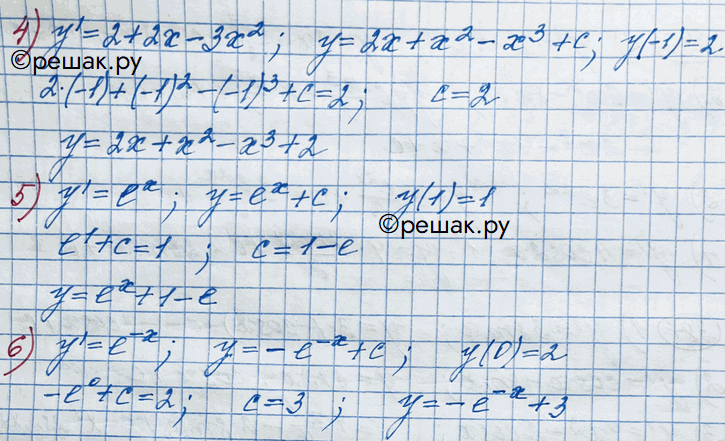 4) y' = 2 + 2x - 3x²; y = 2x + x² - x³ + c; y(-1) = 2
©решак.ру
2·(-1) + (-1)² - (-1)³ + c = 2; c = 2
y = 2x + x² - x³ + 2
5) y' = eˣ; y = eˣ + c; y(1) = 1
©решак.ру
e¹ + c = 1; c = 1 - e
y = eˣ + 1 - e
6) y' = e⁻ˣ; y = -e⁻ˣ + c; y(0) = 2
-e⁰ + c = 2; c = 3; y = -e⁻ˣ + 3